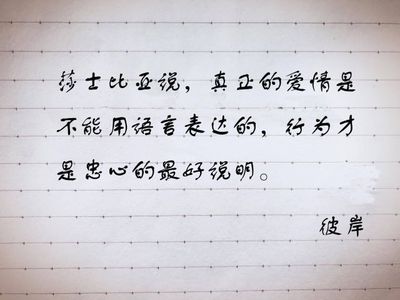 莎士比亚说，真正的爱情是
不能用语言表达的，行为才
是忠心的最好说明。
彼岸